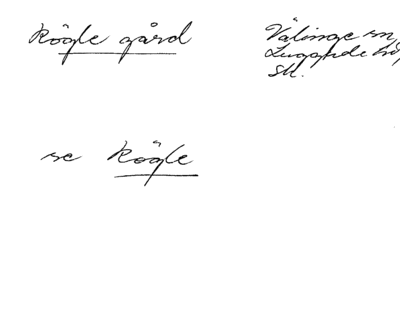 Kögle gård
Välinge sn,
Luggude hd,
Sk.
se Kögle